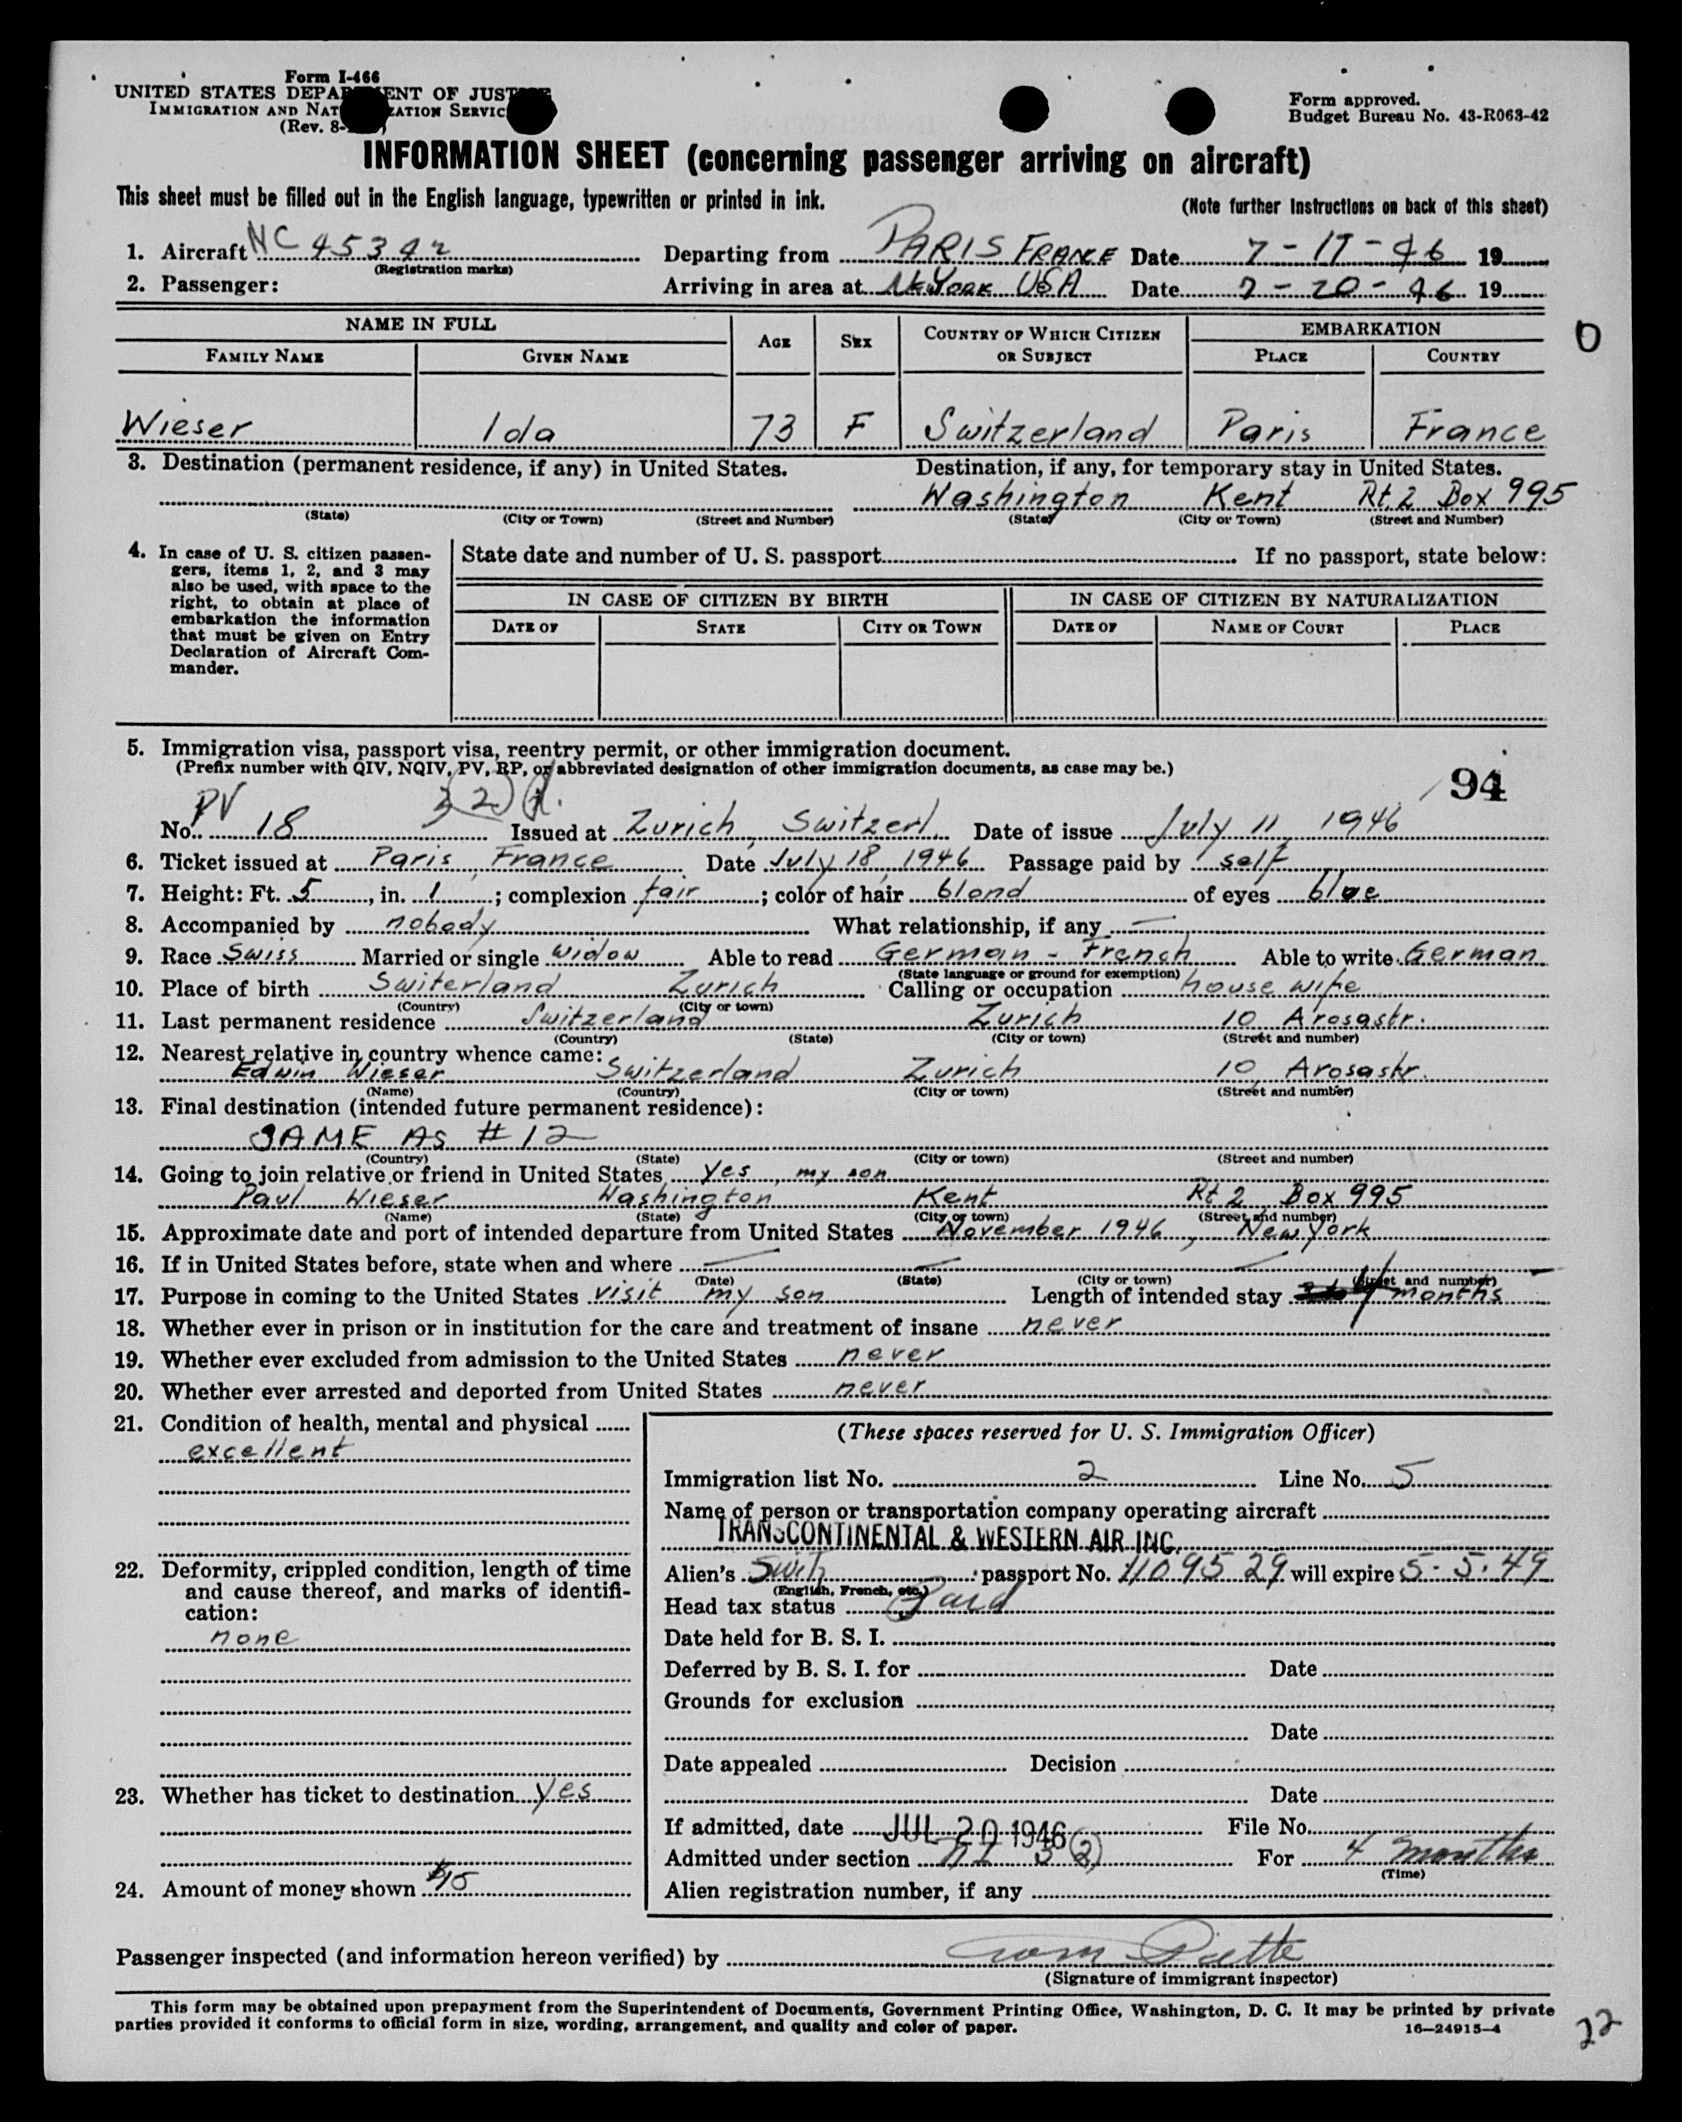 Form I-466
UNITED STATES DEPARTMENT OF JUSTICE
IMMIGRATION AND NATURALIZATION SERVICE
(Rev. 8-
Form approved.
Budget Bureau No. 43-R063-42
INFORMATION SHEET (concerning passenger arriving on aircraft)
This sheet must be filled out in the English language, typewritten or printed in ink.
(Note further instructions on back of this sheet)
1. Aircraft NC 45342 Departing from PARIS FRANCE Date 7-17-46 19
(Registration marks)
2. Passenger: Arriving in area at NEYORK USA Date 7-20-46 19
NAME IN FULL AGE SEX COUNTRY OF WHICH CITIZEN OR SUBJECT EMBARKATION
FAMILY NAME GIVEN NAME PLACE COUNTRY
Wieser Ida 73 F Switzerland Paris France
3. Destination (permanent residence, if any) in United States. Destination, if any, for temporary stay in United States.
Washington Kent Rt. 2 Box 995
(State) (City or Town) (Street and Number) (State) (City or Town) (Street and Number)
4. In case of U. S. citizen passengers, items 1, 2, and 3 may also be used, with space to the right, to obtain at place of embarkation the information that must be given on Entry Declaration of Aircraft Commander.
State date and number of U. S. passport If no passport, state below:
IN CASE OF CITIZEN BY BIRTH IN CASE OF CITIZEN BY NATURALIZATION
DATE OF STATE CITY OR TOWN DATE OF NAME OF COURT PLACE
5. Immigration visa, passport visa, reentry permit, or other immigration document.
(Prefix number with QIV, NQIV, PV, RP, or abbreviated designation of other immigration documents, as case may be.)
94
No. PV 18 Issued at Zurich, Switzerl. Date of issue July 11, 1946
6. Ticket issued at Paris, France Date July 18, 1946 Passage paid by self
7. Height: Ft. 5, in. 1; complexion fair; color of hair blond of eyes blue
8. Accompanied by nobody What relationship, if any —
9. Race Swiss Married or single widow Able to read German - French Able to write German
(State language or ground for exemption)
10. Place of birth Switerland Zurich Calling or occupation house wife
(Country) (City or town)
11. Last permanent residence Switzerland Zurich 10 Arosastr.
(Country) (State) (City or town) (Street and number)
12. Nearest relative in country whence came:
Edwin Wieser Switzerland Zurich 10 Arosastr.
(Name) (Country) (City or town) (Street and number)
13. Final destination (intended future permanent residence):
SAME AS #12
(Country) (State) (City or town) (Street and number)
14. Going to join relative or friend in United States Yes, my son
Paul Wieser Washington Kent Rt 2 Box 995
(Name) (State) (City or town) (Street and number)
15. Approximate date and port of intended departure from United States November 1946, New York
16. If in United States before, state when and where — — —
(Date) (State) (City or town) (Street and number)
17. Purpose in coming to the United States visit my son Length of intended stay 4 months
18. Whether ever in prison or in institution for the care and treatment of insane never
19. Whether ever excluded from admission to the United States never
20. Whether ever arrested and deported from United States never
21. Condition of health, mental and physical
excellent
22. Deformity, crippled condition, length of time and cause thereof, and marks of identification:
none
23. Whether has ticket to destination yes
24. Amount of money shown $15
(These spaces reserved for U. S. Immigration Officer)
Immigration list No. 2 Line No. 5
Name of person or transportation company operating aircraft
TRANSCONTINENTAL & WESTERN AIR INC.
Alien's passport No. 1109529 will expire 5-5-49
(English, French, etc.)
Head tax status Paid
Date held for B. S. I.
Deferred by B. S. I. for Date
Grounds for exclusion
Date
Date appealed Decision
Date
If admitted, date JUL 20 1946 File No.
Admitted under section 3 (2) For 4 months
(Time)
Alien registration number, if any
Passenger inspected (and information hereon verified) by
(Signature of immigrant inspector)
This form may be obtained upon prepayment from the Superintendent of Documents, Government Printing Office, Washington, D. C. It may be printed by private
parties provided it conforms to official form in size, wording, arrangement, and quality and color of paper.
16—24915-4
22